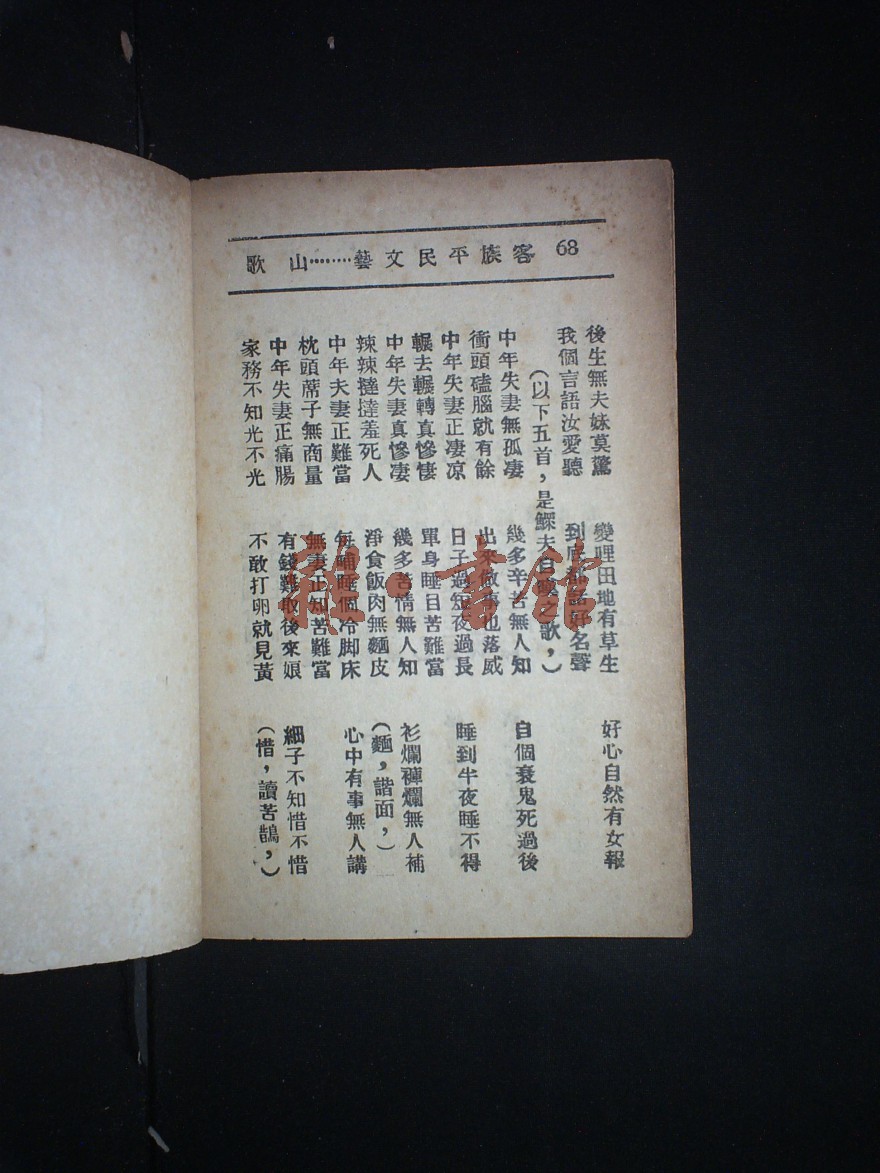 68 客族平民文藝………山歌
後生無夫妹莫驚 變哩田地有草生 好心自然有女報
我個言語汝愛聽 到底都話好名聲
(以下五首,是鰥夫自嘆之歌,)
中年失妻無孤凄 幾多辛苦無人知 自個衰鬼死過後
衝頭磕腦就有餘 出來做事也落威
中年失妻正凄凉 日子過短夜過長 睡到半夜睡不得
輾去輾轉真慘悽 單身睡目苦難當
中年失妻真慘凄 幾多苦情無人知 衫爛褲爛無人補
辣辣撻撻羞死人 淨食飯肉無麵皮 (麵,諧面,)
中年夫妻正難當 每晡睡個冷脚床 心中有事無人講
枕頭蓆子無商量 無妻正知苦難當
中年失妻正痛腸 有錢難取後來娘 細子不知惜不惜
家務不知光不光 不敢打卵就見黃 (惜,讀苦鵲,)
書館